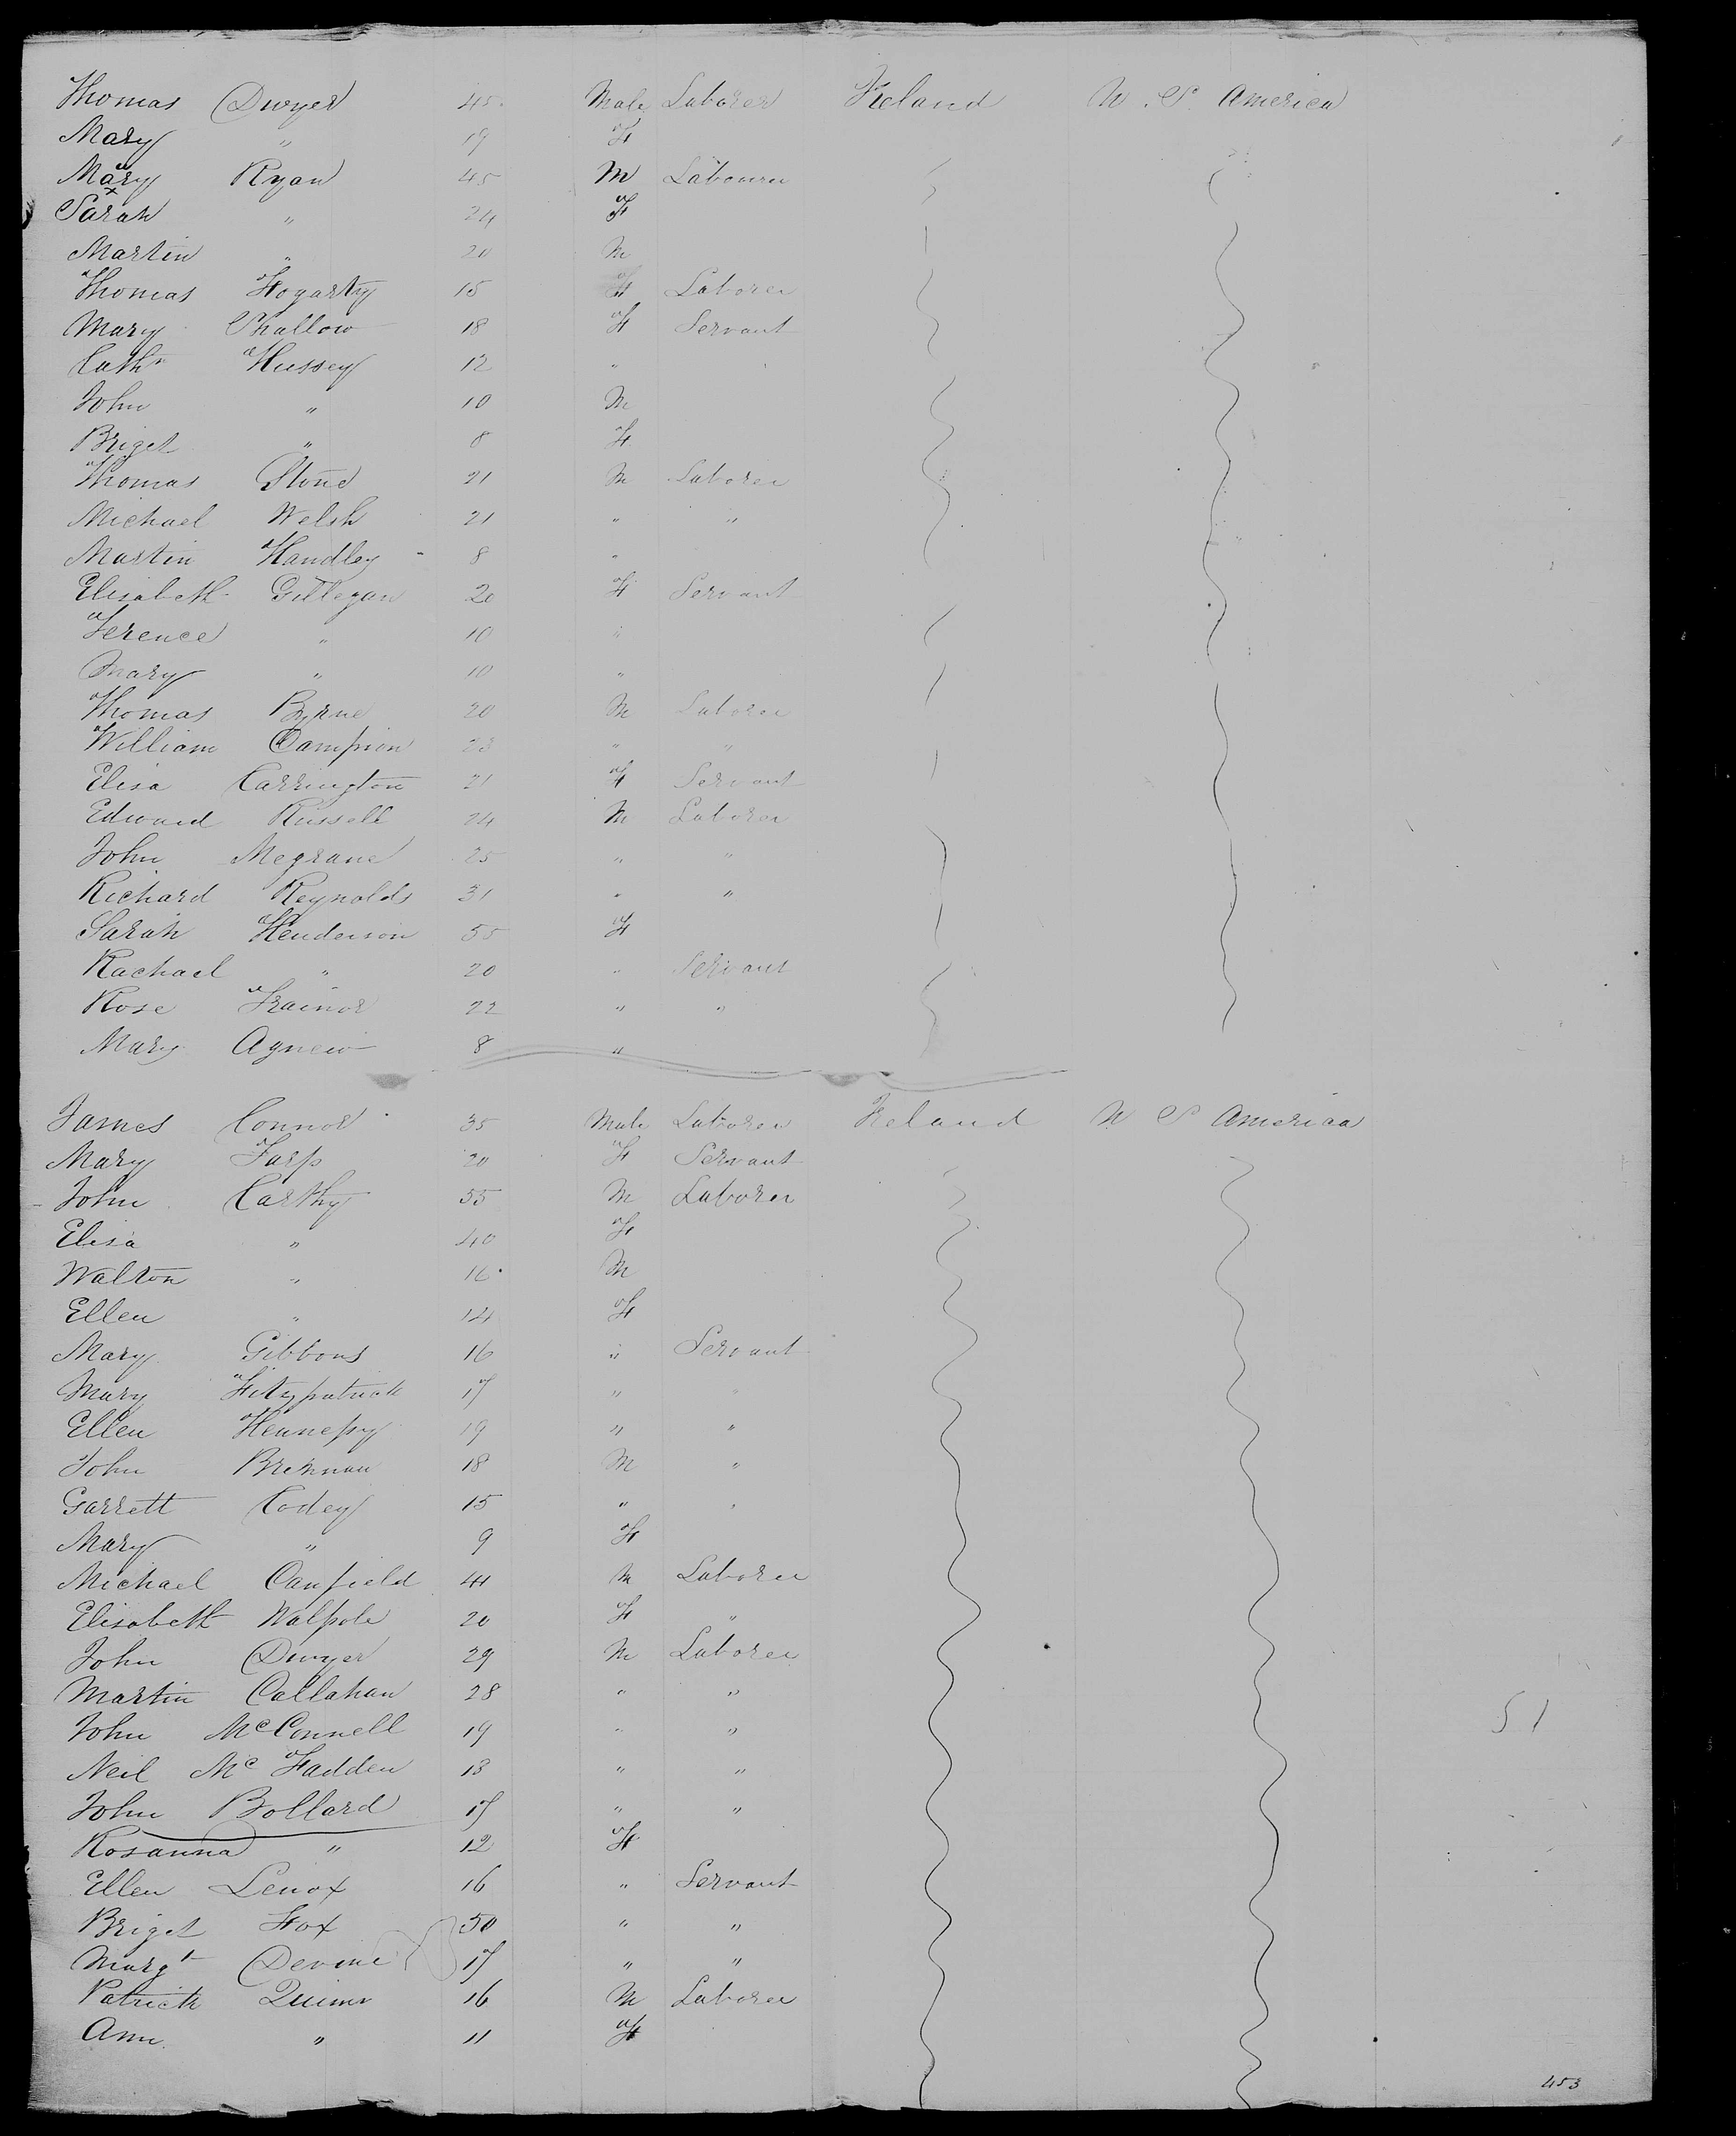 Thomas Dwyer 45 Male Laborer Ireland U. S. America
Mary " 19 F
Mary Ryan 45 M Labourer
Sarah " 24 F
Martin " 20 M
Thomas Hogarty 15 F Laborer
Mary Shallow 18 F Servant
Cathn Hussey 12 "
John " 10 M
Briget " 8 F
Thomas Stone 21 M Laborer
Michael Welsh 21 " "
Martin Handley 8 "
Elisabeth Gillegan 20 F Servant
Terence " 10 "
Mary " 10 "
Thomas Byrne 20 M Laborer
William Campion 23 " "
Elisa Carrington 21 F Servant
Edward Russell 24 M Laborer
John Megrane 25 " "
Richard Reynolds 31 " "
Sarah Henderson 55 F
Rachael " 20 " Servant
Rose Trainor 22 " "
Mary Agnew 8 "
James Connor 35 Male Laborer Ireland U S America
Mary 20 F Servant
John Carthy 55 M Laborer
Elisa " 40 F
Walton " 16 M
Ellen " 14 F
Mary Gibbons 16 " Servant
Mary Fitzpatrick 17 " "
Ellen Hennessy 19 " "
John Brennan 18 M "
Garrett Codey 15 " "
Mary " 9 F
Michael Canfield 41 M Laborer
Elisabeth Walpole 20 F "
John Dwyer 29 M Laborer
Martin Callahan 28 " "
John McConnell 19 " "
Neil Mc Fadden 18 " "
John Bollard 17 " "
Rosanna " 12 F
Ellen Lenox 16 " Servant
Briget Fox 50 " "
Margt Devine 17 " "
Patrick Quinn 16 M Laborer
Ann " 11 F
51
453